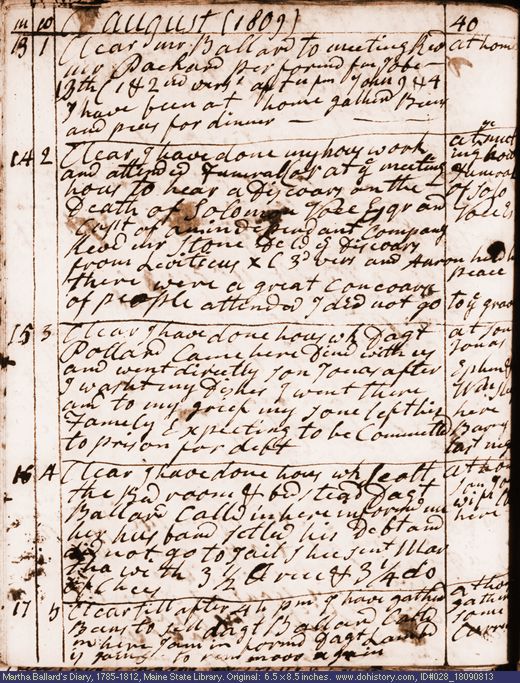 m w August (1809) 40
13 1 Clear mr Ballard to meeting Rev at home
mr Packard performd fm Jobe
13th C 1 & 2nd vers aftn pm John 9 & 4
I have been at home gatherd Beens
and peas for dinner
14 2 Clear I have done my hous work
and attended Funerall or at ye meeting
hous to hear a Discoars on the
Death of Solomon Vose Esqr and
Capt of an independant Company
Revd mr Stone Deld ye Discoars
from Leviticus X C 3d vers and Aaron held his peace
there were a great concoars
of people attended I did not go to ye grave
15 3 Clear I have done hous wk Dagt
Pollard Came here Dind with us
and went directly son Jonas after
I washt my Dishes I went there
and to my grief my sone left his
Family Expecting to be Committed
to prison for debt
at son
Jonas
Ephm &
here
last
16 4 Clear I have done hous wk
the Bed room & bedstead Dagt
Ballard Calld in here inform me
her husband setled his Debt and
did not go to Jail shee sent Mar
tha with 3 1/2 & 3 1/4 do
of Chees
at home
son
wife
here
17 5 Clear till after 4 h pm I have gatherd
Beens to Dagt Ballard Calld
in here inform Dagt
is going to moov again
at home
gather
some
Martha Ballard's Diary, 1785-1812, Maine State Library. Original: 6.5 x 8.5 inches. www.dohistory.com, ID#028_18090813